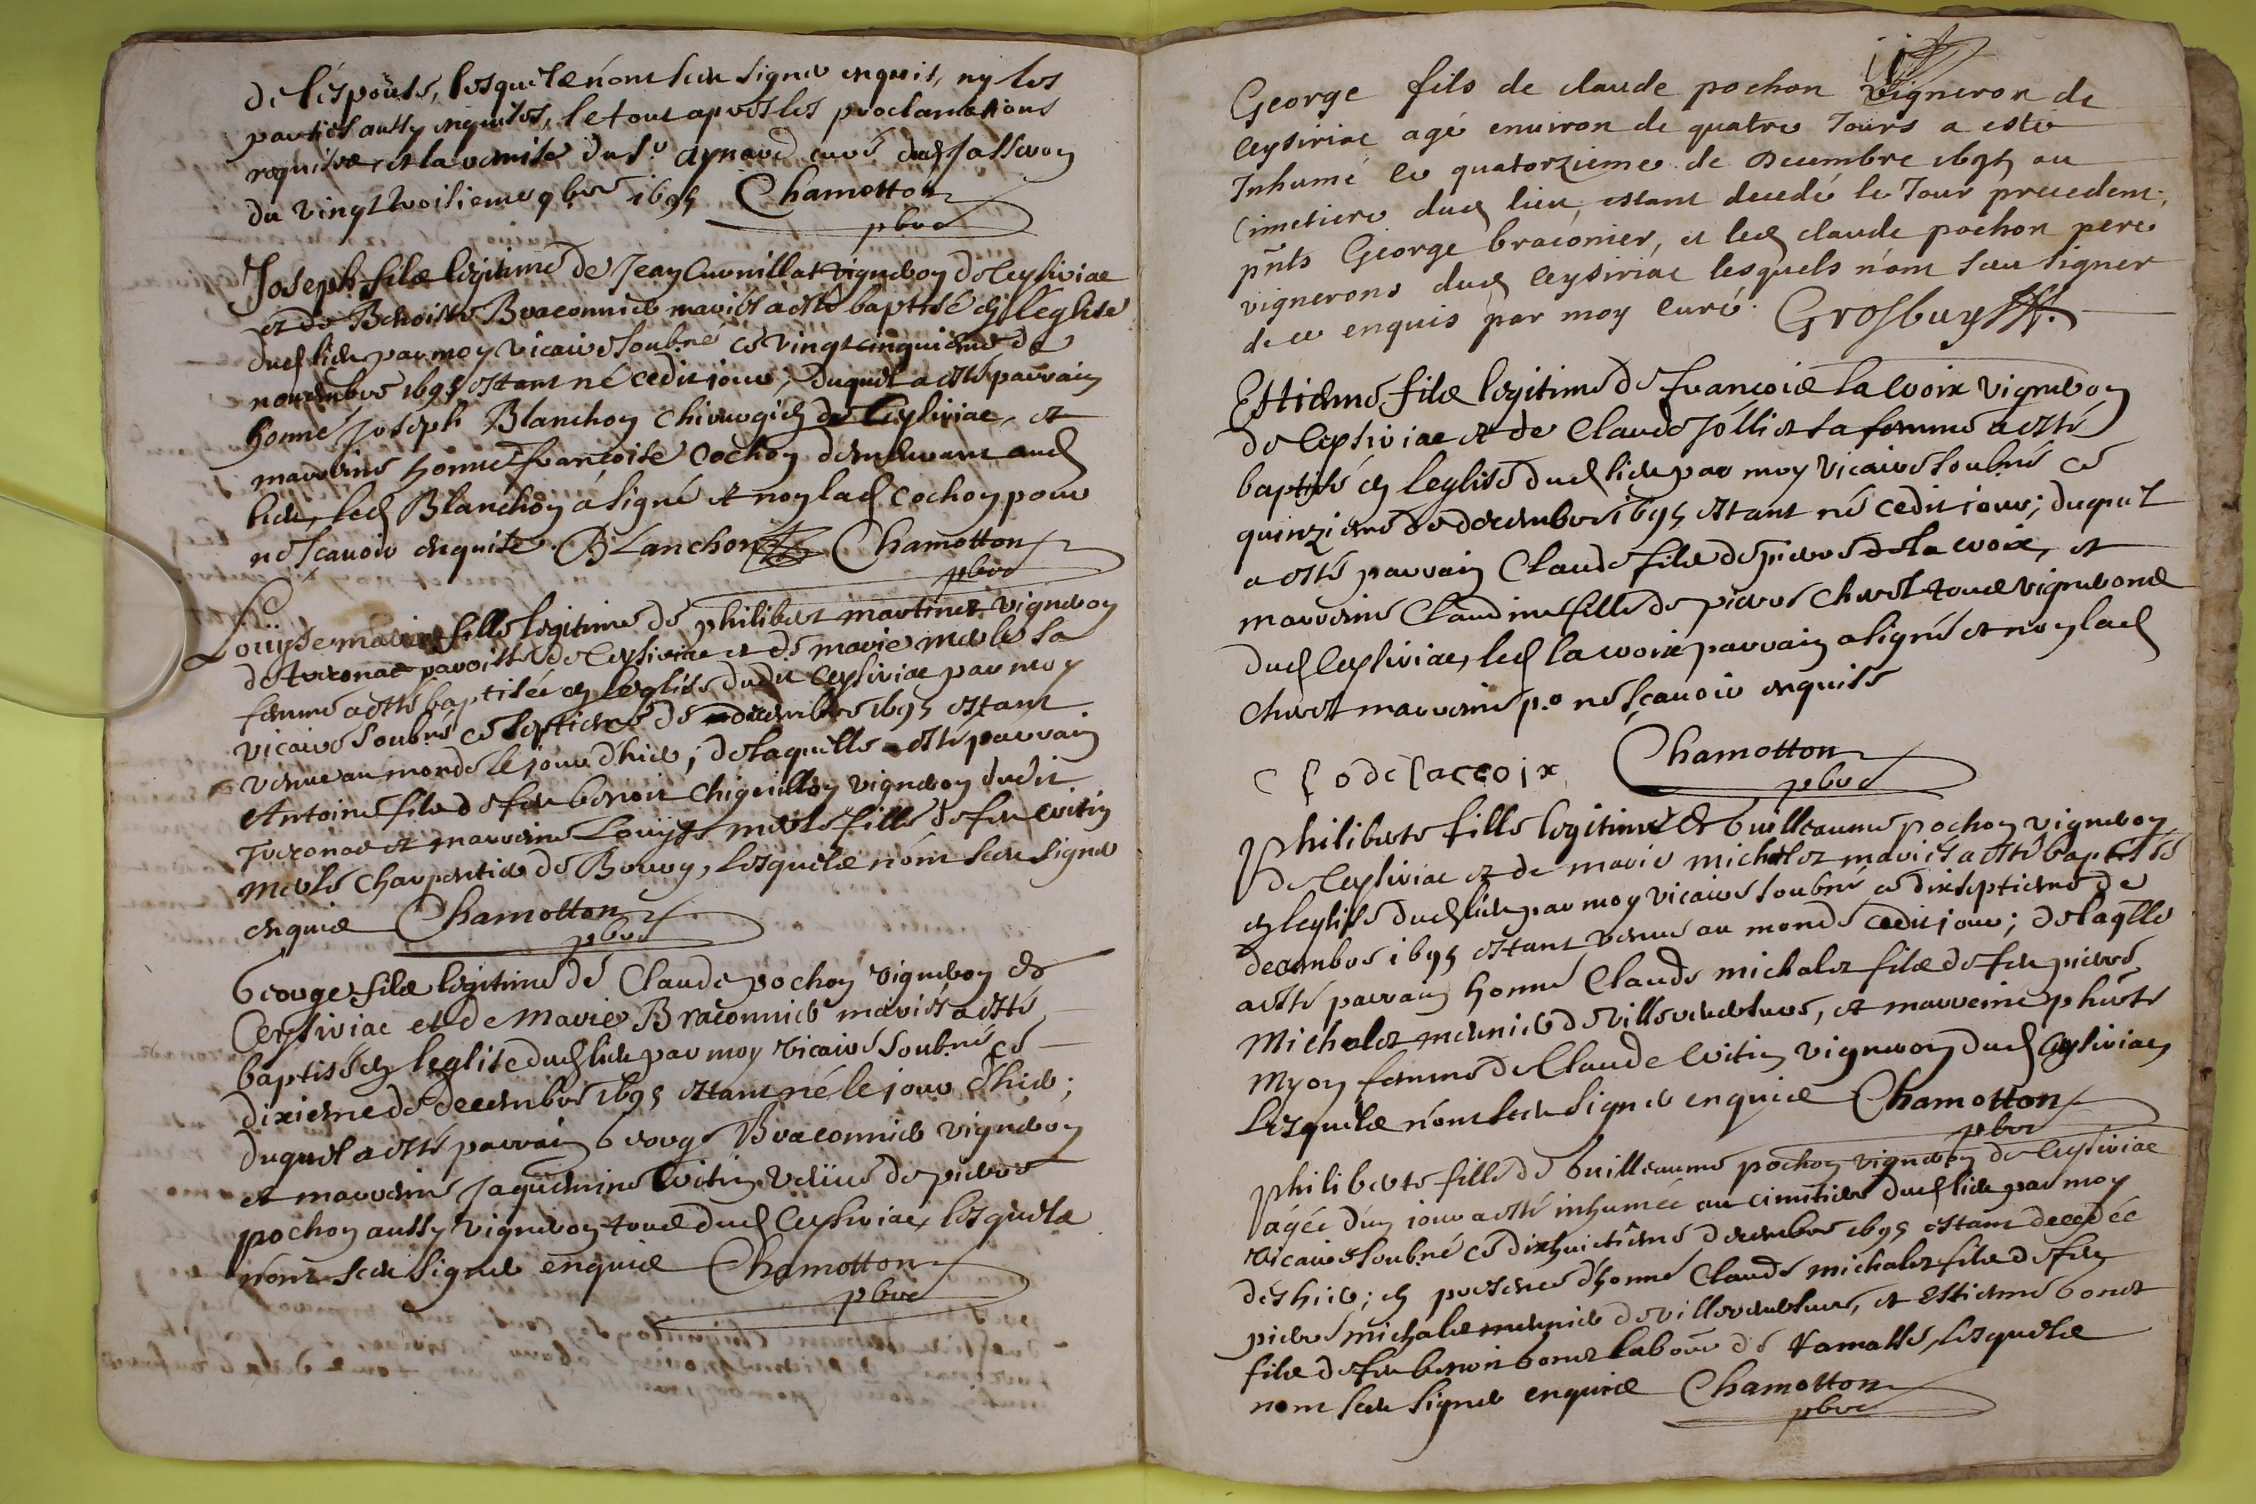 de l'espouse, lesquels n'ont sceu signer enquis, ny les
parties aussy enquises, le tout apres les proclamations
requises et la remise du sr aynard curé dud Jasseron
du vingt troisieme 9bre 1695 Chamotton
pbre
Joseph fils legitime de Jean Curnillat vigneron de Ceysiriac
et de Benoiste Braconnier mariés a esté baptisé en l'eglise
dud lieu par moy vicaire soubné ce vingt cinquieme de
novembre 1695 estant né cedit jour, duquel a esté parrain
honné Joseph Blanchon chirurgien de Ceysiriac, et
marreine honneste françoise Cochon demeurant aud
lieu, led Blanchon a signé et non lad Cochon pour
ne sçavoir enquise. BLanchon Chamotton
pbre
Louyse marie fille legitime de philibert martinet vigneron
de treconac paroisse de Ceysiriac et de marie merle sa
femme a esté baptisée en l'eglise dudit Ceysiriac par moy
vicaire soubné ce septieme de decembre 1695 estant
venue au monde le jour d'hier; de laquelle a esté parrain
Antoine fils de feu benoit Chiguillon vigneron dudit
Treconac et marreine Louyse merle fille de feu Critin
merle charpentier de Bourg, lesquels n'ont sceu signer
enquis Chamotton
pbre
George fils legitime de Claude pochon vigneron de
Ceysiriac et de Marie Braconnier mariés a esté
baptisé en l'eglise dud lieu par moy vicaire soubné ce
dixieme de decembre 1695 estant né le jour d'hier;
duquel a esté parrain George Braconnier vigneron
et marreine Jaquemine Critin veuve de pierre
pochon aussy vigneron tous dud Ceysiriac, lesquels
n'ont sceu signer enquis Chamotton
pbre
George fils de claude pochon vigneron de
Ceysiriac agé environ de quatre Jours a esté
Inhumé le quatorzieme de Decembre 1695 au
Cimetiere dud lieu, estant decedé le Jour precedent;
pnts George braconier, et led claude pochon pere
vignerons dud Ceysiriac lesquels n'ont sceu signer
de ce enquis par moy curé. Grosbuys
Estienne fils legitime de françois la Croix vigneron
de Ceysiriac et de Claude Jolliet sa femme a esté
baptisé en l'eglise dud lieu par moy vicaire soubné ce
quinzieme de decembre 1695 estant né cedit jour; duquel
a esté parrain Claude fils de pierre de la croix, et
marreine Claudine fille de pierre Chevet tous vignerons
dud Ceysiriac, led la croix parrain a signé et non lad
Chevet marreine po ne sçavoir enquise
Clo delacroix Chamotton
pbre
Philiberte fille legitime de Guilleaume pochon vigneron
de Ceysiriac et de marie michalet mariés a esté baptisée
en l'eglise dud lieu par moy vicaire soubné ce dixseptieme de
decembre 1695 estant venue au monde cedit jour; de laqlle
a esté parrain honné Claude michalet fils de feu pierre
Michalet meunier de villereversure, et marreine phiste
Myon femme de Claude Critin vigneron dud Ceysiriac,
Lesquels n'ont sceu signer enquis Chamotton
pbre
Philiberte fille de Guilleaume pochon vigneron de Ceysiriac
agée d'un jour a esté inhumée au cimetiere dud lieu par moy
vicaire soubné ce dixhuictieme decembre 1695 estant decedée
des hier; en presence d'honné Claude michalet fils de feu
pierre michalet meunier de villereversure, et Estienne bonet
fils de feu benoit bonet labour de Ramasse, lesquels
nont sceu signer enquis Chamotton
pbre